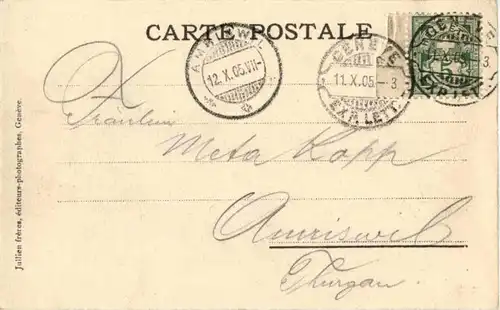 CARTE POSTALE
AMRISWIL
12.X.05.VII-
GENÈVE
11.X.05.-3
EXP. LETT.
GENÈVE
EXP. LETT.
Fräulein
Meta Kopp
Amriswil
Thurgau
Jullien frères, éditeurs-photographes, Genève.